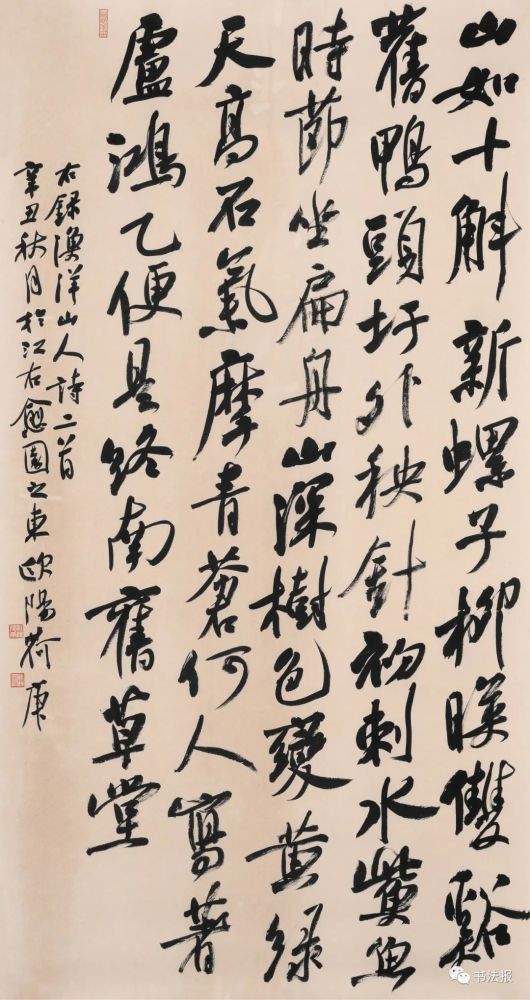 山如十斛新螺子柳暎雙谿
舊鴨頭圩外秧針初刺水鮆魚
時節坐扁舟山深樹色變黄緑
天髙石氣摩青蒼何人寫著
盧鴻乙便是終南舊草堂
右録漁洋山人詩二首
辛丑秋月於江右愈園之東歐陽荷庚
书法报